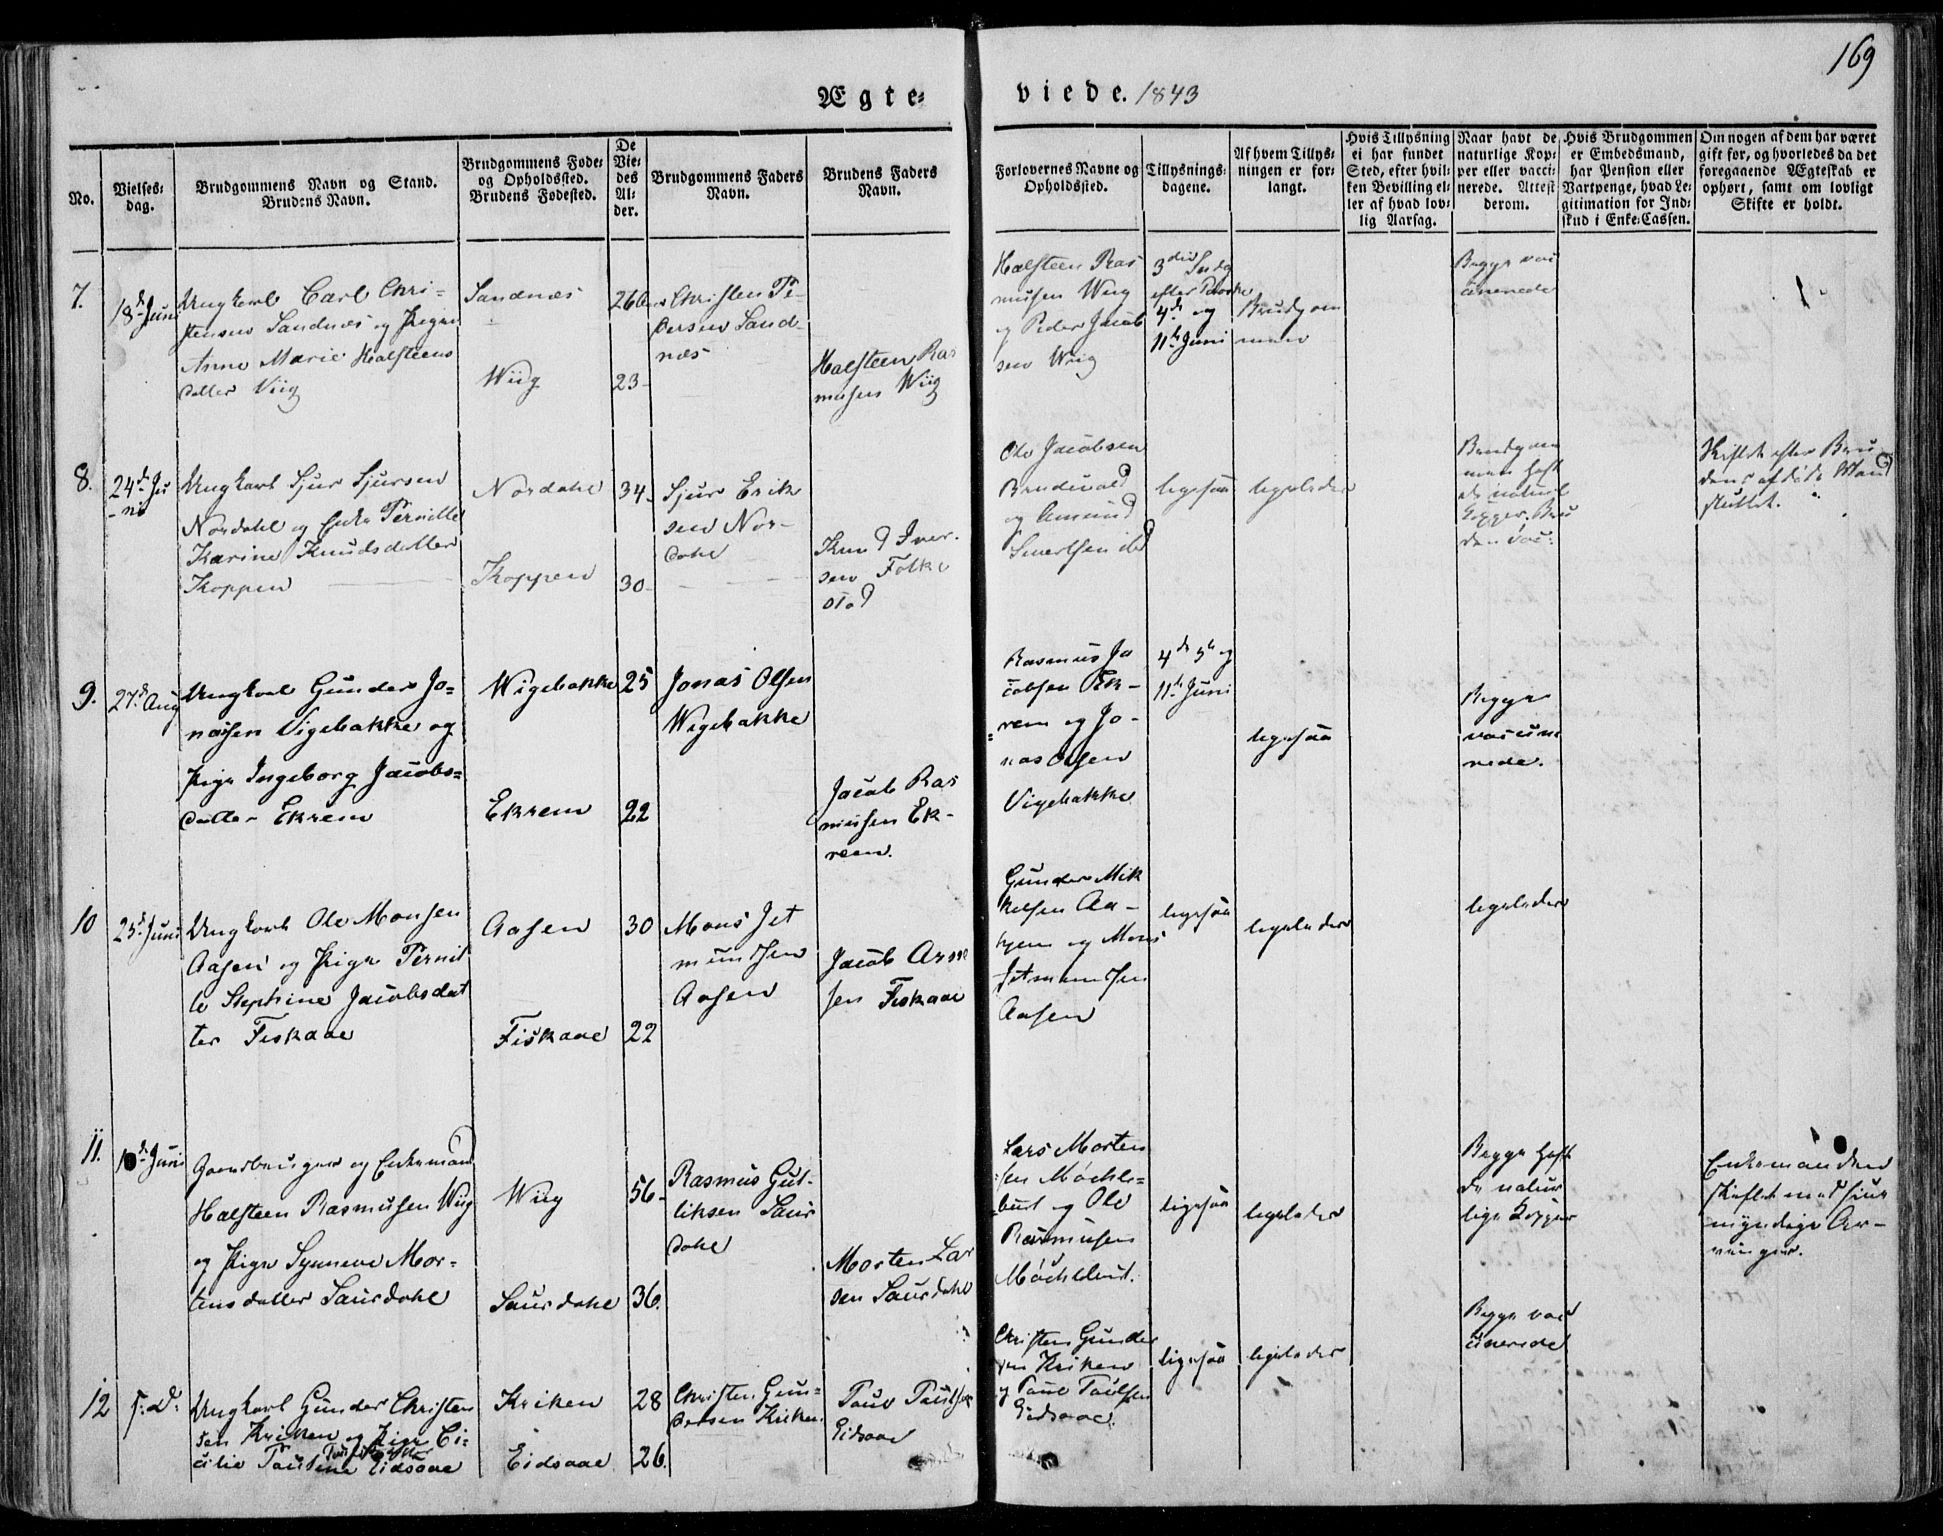 169
Ægte-
viede. 1843
No.
Vielses-
dag.
Brudgommens Navn og Stand.
Brudens Navn.
Brudgommens Føde-
og Opholdssted.
Brudens Fødested.
De
Vie-
des
Al-
der.
Brudgommens Faders
Navn.
Brudens Faders
Navn.
Forlovernes Navne og
Opholdssted.
Tillysnings-
dagene.
Af hvem Tillys-
ningen er for-
langt.
Hvis Tillysning
ei har fundet
Sted, efter hvil-
ken Bevilling el-
ler af hvad lov-
lig Aarsag.
Naar havt de
naturlige Kop-
per eller vacci-
nerede. Attest
derom.
Hvis Brudgommen
er Embedsmand,
har Pension eller
Vartpenge, hvad Le-
gitimation for Ind-
skud i Enke-Cassen.
Om nogen af dem har været
gift før, og hvorledes da det
foregaaende Ægteskab er
ophørt, samt om lovligt
Skifte er holdt.
7.
18d Juni
Ungkarl Carl Chri-
stensen Sandnæs og Pigen
Anne Marie Halsteens
datter Viig
Sandnæs
Wiig
26
23
Christen Pe-
dersen Sand-
næs
Halsteen Ras
musen Wiig
Halsteen Ras
musen Wiig
og Peder Jacob
sen Wiig
3die Sndg
efter Paaske
4de og
11te Juni
Brudgom
men
Begge vac
cinerede
8.
24d Ju
-ni
Ungkarl Sjur Sjursen
Nordahl og Enke Pernille
Karine Knudsdatter
Koppen
Nordahl
Koppen
34
30
Sjur Erik
sen Nor-
dahl
Knud Iver-
sen Folke
stad
Ole Jacobsen
Brudevold
og Amund
Sivertsen ibd
ligesaa
ligeledes
Brudgom
men haft
de naturl
Kopper. Bru
den vac:
Skiftet efter Bru
dens afdøde Mand
sluttet.
9.
27d Aug
Ungkarl Gunder Jo-
nassen Vigebakke og
Pige Ingeborg Jacobs-
datter Ekrem
Wigebakke
Ekrem
25
22
Jonas Olsen
Wigebakke
Jacob Ras
musen Ek-
rem.
Rasmus Ja
cobsen Ek-
rem og Jo-
nas Olsen
Vigebakke
4de 5te og
11te Juni
ligesaa
Begge
vaccine
rede.
10
25d Juni
Ungkarl Ole Monsen
Aasen og Pige Pernil
le Stephine Jacobsdat
ter Fiskaae
Aasen
Fiskaae
30
22
Mons Jet
mundsen
Aasen
Jacob Arne
sen Fiskaae
Gunder Mik
kelsen Aa-
hjem og Mons
Jetmundsen
Aasen
ligesaa
ligeledes
ligeledes
11.
10d Juni
Gaardbruger og Enkemand
Halsteen Rasmusen Wiig
og Pige Synneve Mor-
tensdatter Saurdahl
Wiig
Saurdahl
56
36.
Rasmus Gut-
tiksen Saur
dahl
Morten Lar
sen Saurdahl
Lars Morten
sen Møchle-
bust og Ole
Rasmusen
Møchlebust.
ligesaa
ligeledes
Begge haft
de natur
lige Kopper
Enkemanden
skiftet med sine
myndige Ar-
vinger.
12
s: D:
Ungkarl Gunder Christen
sen Kriken og Pige Ci-
cilie Pauline Eidsaae
Kriken
Eidsaae
28
26
Christen Gun-
dersen Kriken
Poul Poulsen
Eidsaae
Christen Gunder
sen Kriken
og Poul Poulsen
Eidsaae.
ligesaa
ligeledes
Begge vac
cinerede